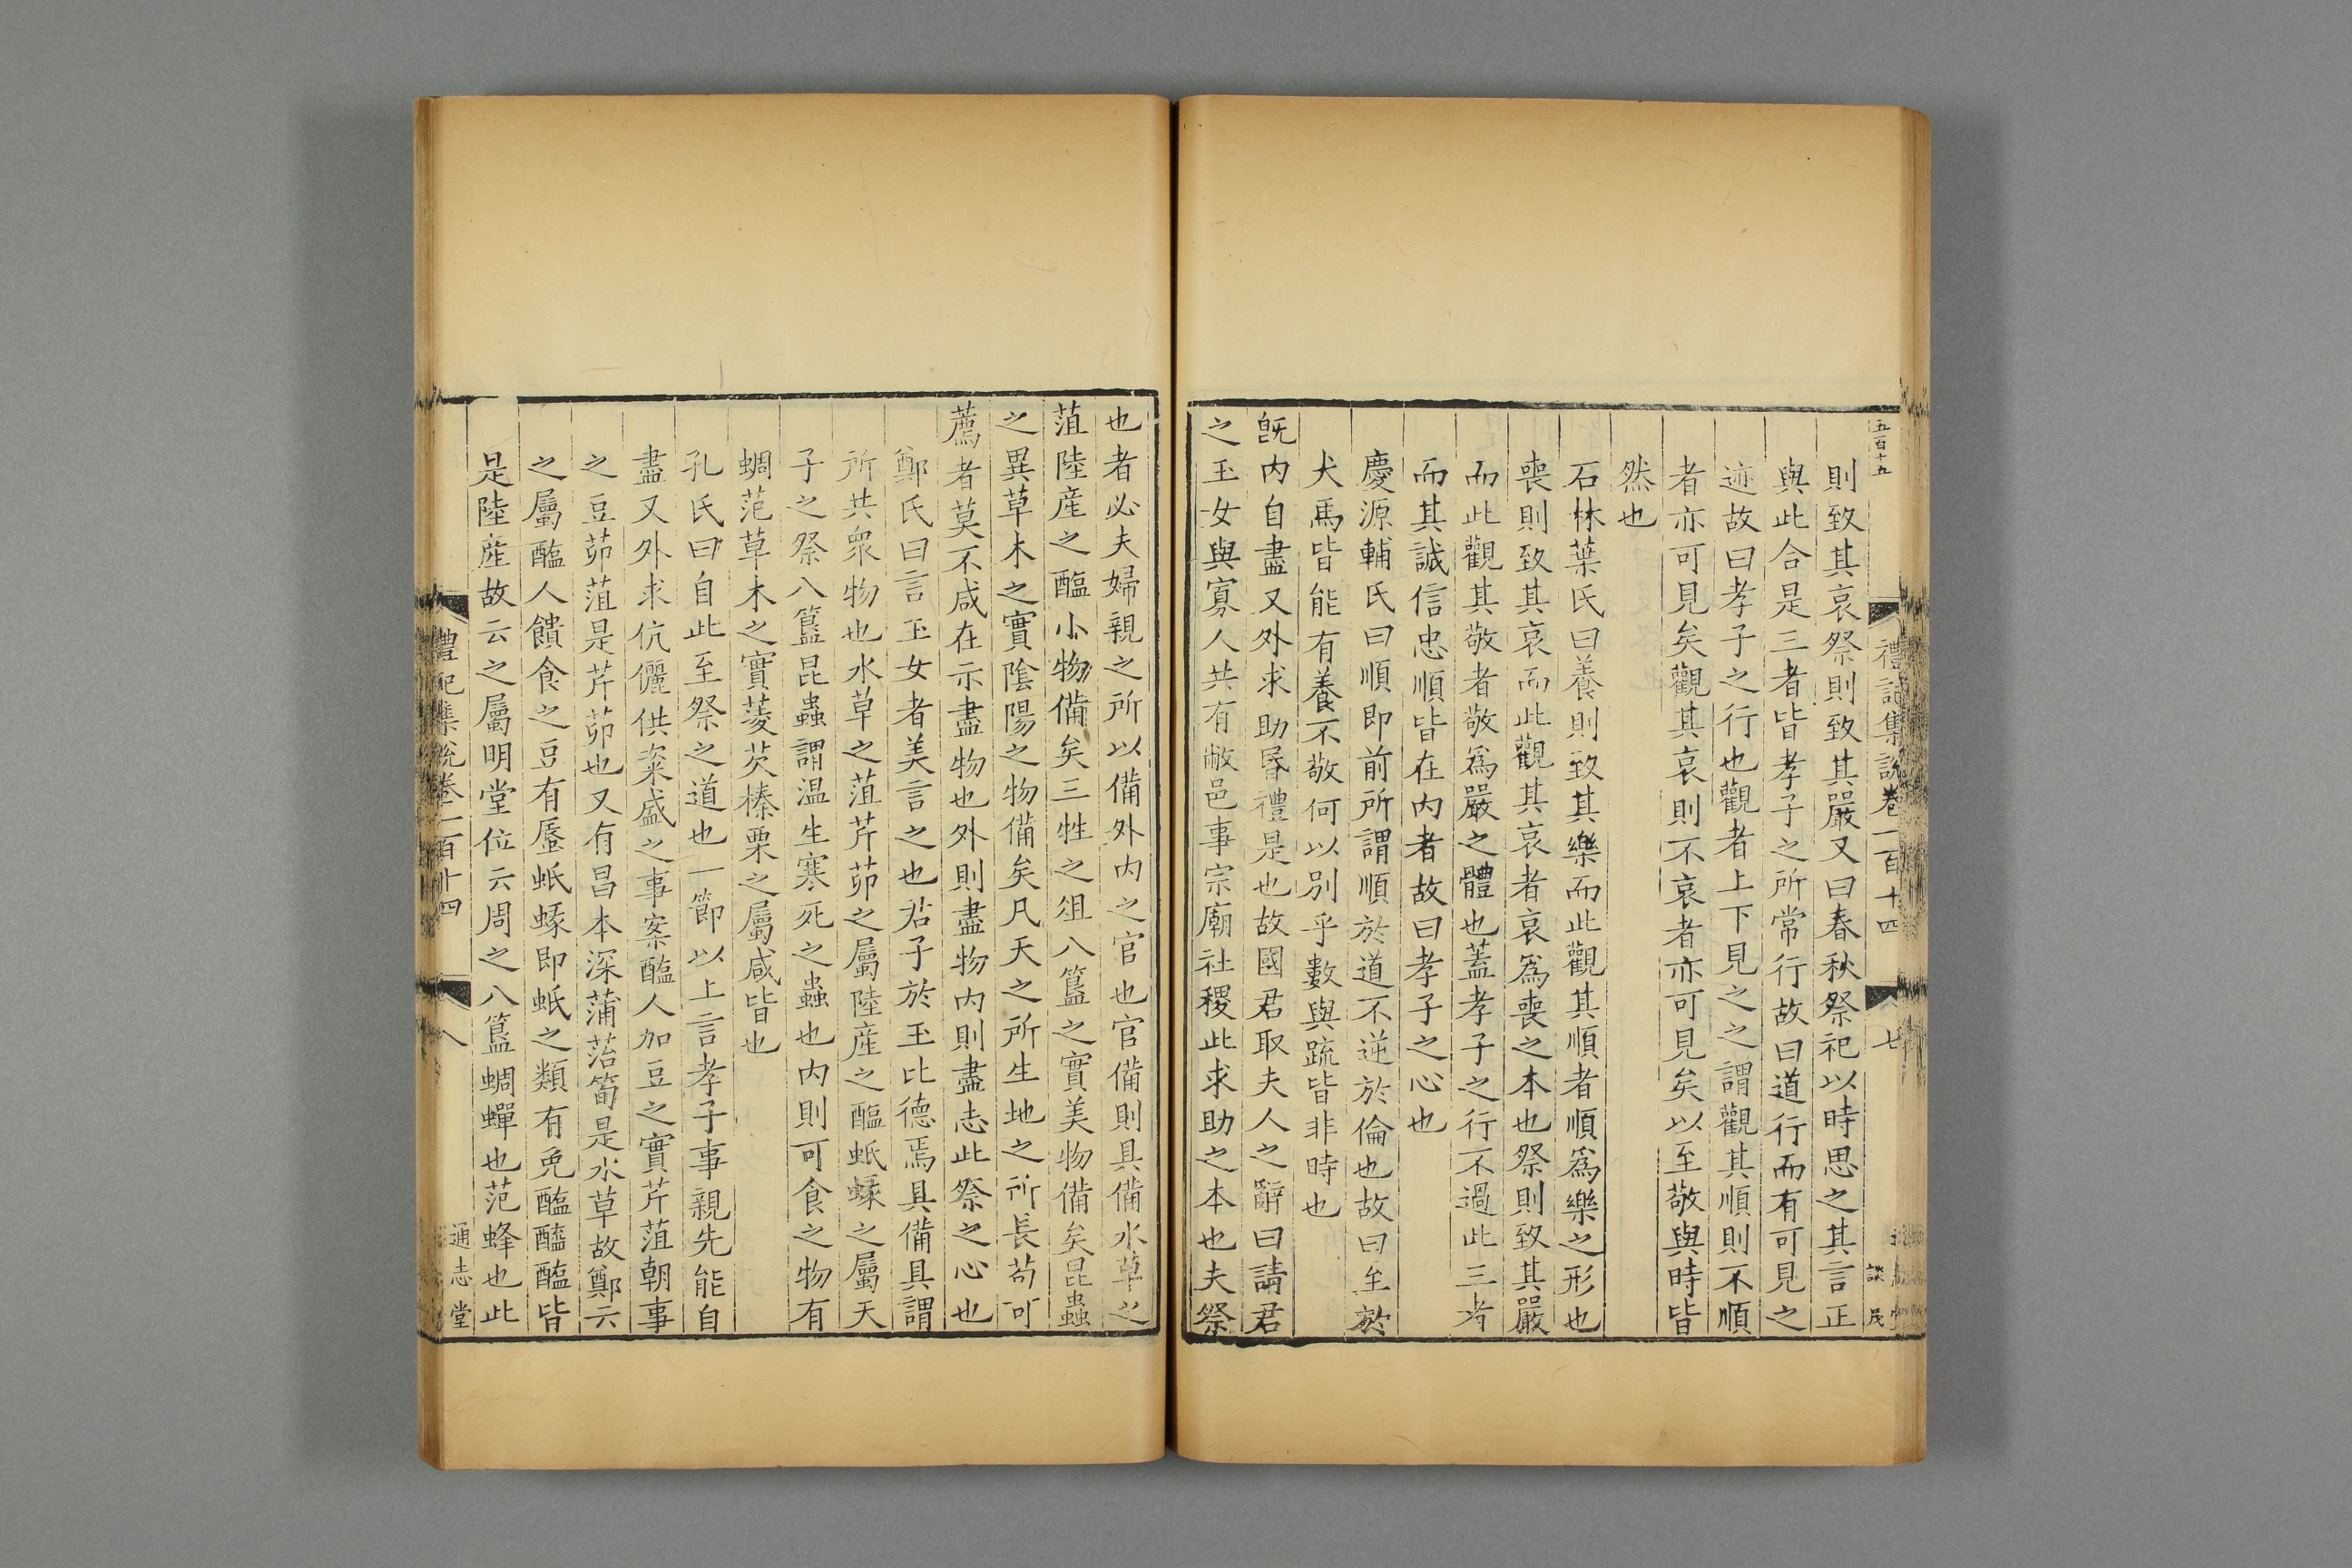 五百十五
禮記集說卷一百十四
七
談
民
則致其哀祭則致其嚴又曰春秋祭祀以時思之其言正
與此合是三者皆孝子之所常行故曰道行而有可見之
迹故曰孝子之行也觀者上下見之之謂觀其順則不順
者亦可見矣觀其哀則不哀者亦可見矣以至敬與時皆
然也
石林葉氏曰養則致其樂而此觀其順者順爲樂之形也
喪則致其哀而此觀其哀者哀爲喪之本也祭則致其嚴
而此觀其敬者敬爲嚴之體也蓋孝子之行不過此三者
而其誠信忠順皆在内者故曰孝子之心也
慶源輔氏曰順即前所謂順於道不逆於倫也故曰至於
犬馬皆能有養不敬何以別乎數與䟽皆非時也
旣内自盡又外求助昬禮是也故國君取夫人之辭曰請君
之玉女與寡人共有敝邑事宗廟社稷此求助之本也夫祭
也者必夫婦親之所以備外内之官也官備則具備水草之
菹陸産之醢小物備矣三牲之俎八簋之實美物備矣昆蟲
之異草木之實陰陽之物備矣凡天之所生地之所長苟可
薦者莫不咸在示盡物也外則盡物内則盡志此祭之心也
鄭氏曰言玉女者美言之也君子於玉比德焉具備具謂
所共衆物也水草之菹芹茆之屬陸産之醢蚳蝝之屬天
子之祭八簋昆蟲謂温生寒死之蟲也内則可食之物有
蜩范草木之實蔆芡榛栗之屬咸皆也
孔氏曰自此至祭之道也一節以上言孝子事親先能自
盡又外求伉儷供粢盛之事案醢人加豆之實芹菹朝事
之豆茆菹是芹茆也又有昌本深蒲菭筍是水草故鄭云
之屬醢人饋食之豆有蜃蚳蝝即蚳之類有免醢醯醢皆
是陸産故云之屬明堂位云周之八簋蜩蟬也范蜂也此
禮記集說卷一百十四
八
通志堂